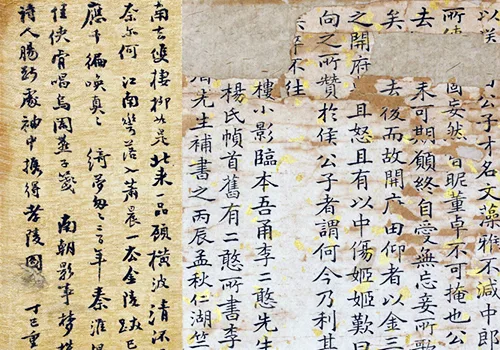 公子才名文藻雅不減中郎
所 固妄然 昵董卓不可掩也公
去 未可期願終自愛無忘妾所歌
矣 去後而故開 仰者以金三
之開府 且怒且有以中傷姬姬歎曰
向之所贊於侯公子者謂何今乃利其
卒不往
樓小影臨本吾甬李二憨先生
楊氏幀首舊有二憨所書李
先生補書之丙辰孟秋仁湖竺
南去雙棲柳 是北來一品顧橫波清
奈尔何 江南 落入蕭晨一本金陵跋已
應 徧喚真真 綺夢匆匆三百年秦淮
佳俠肯唱烏闌燕子箋 南朝影事夢
詩人腸斷處袖中携得孝陵圖 丁巳重